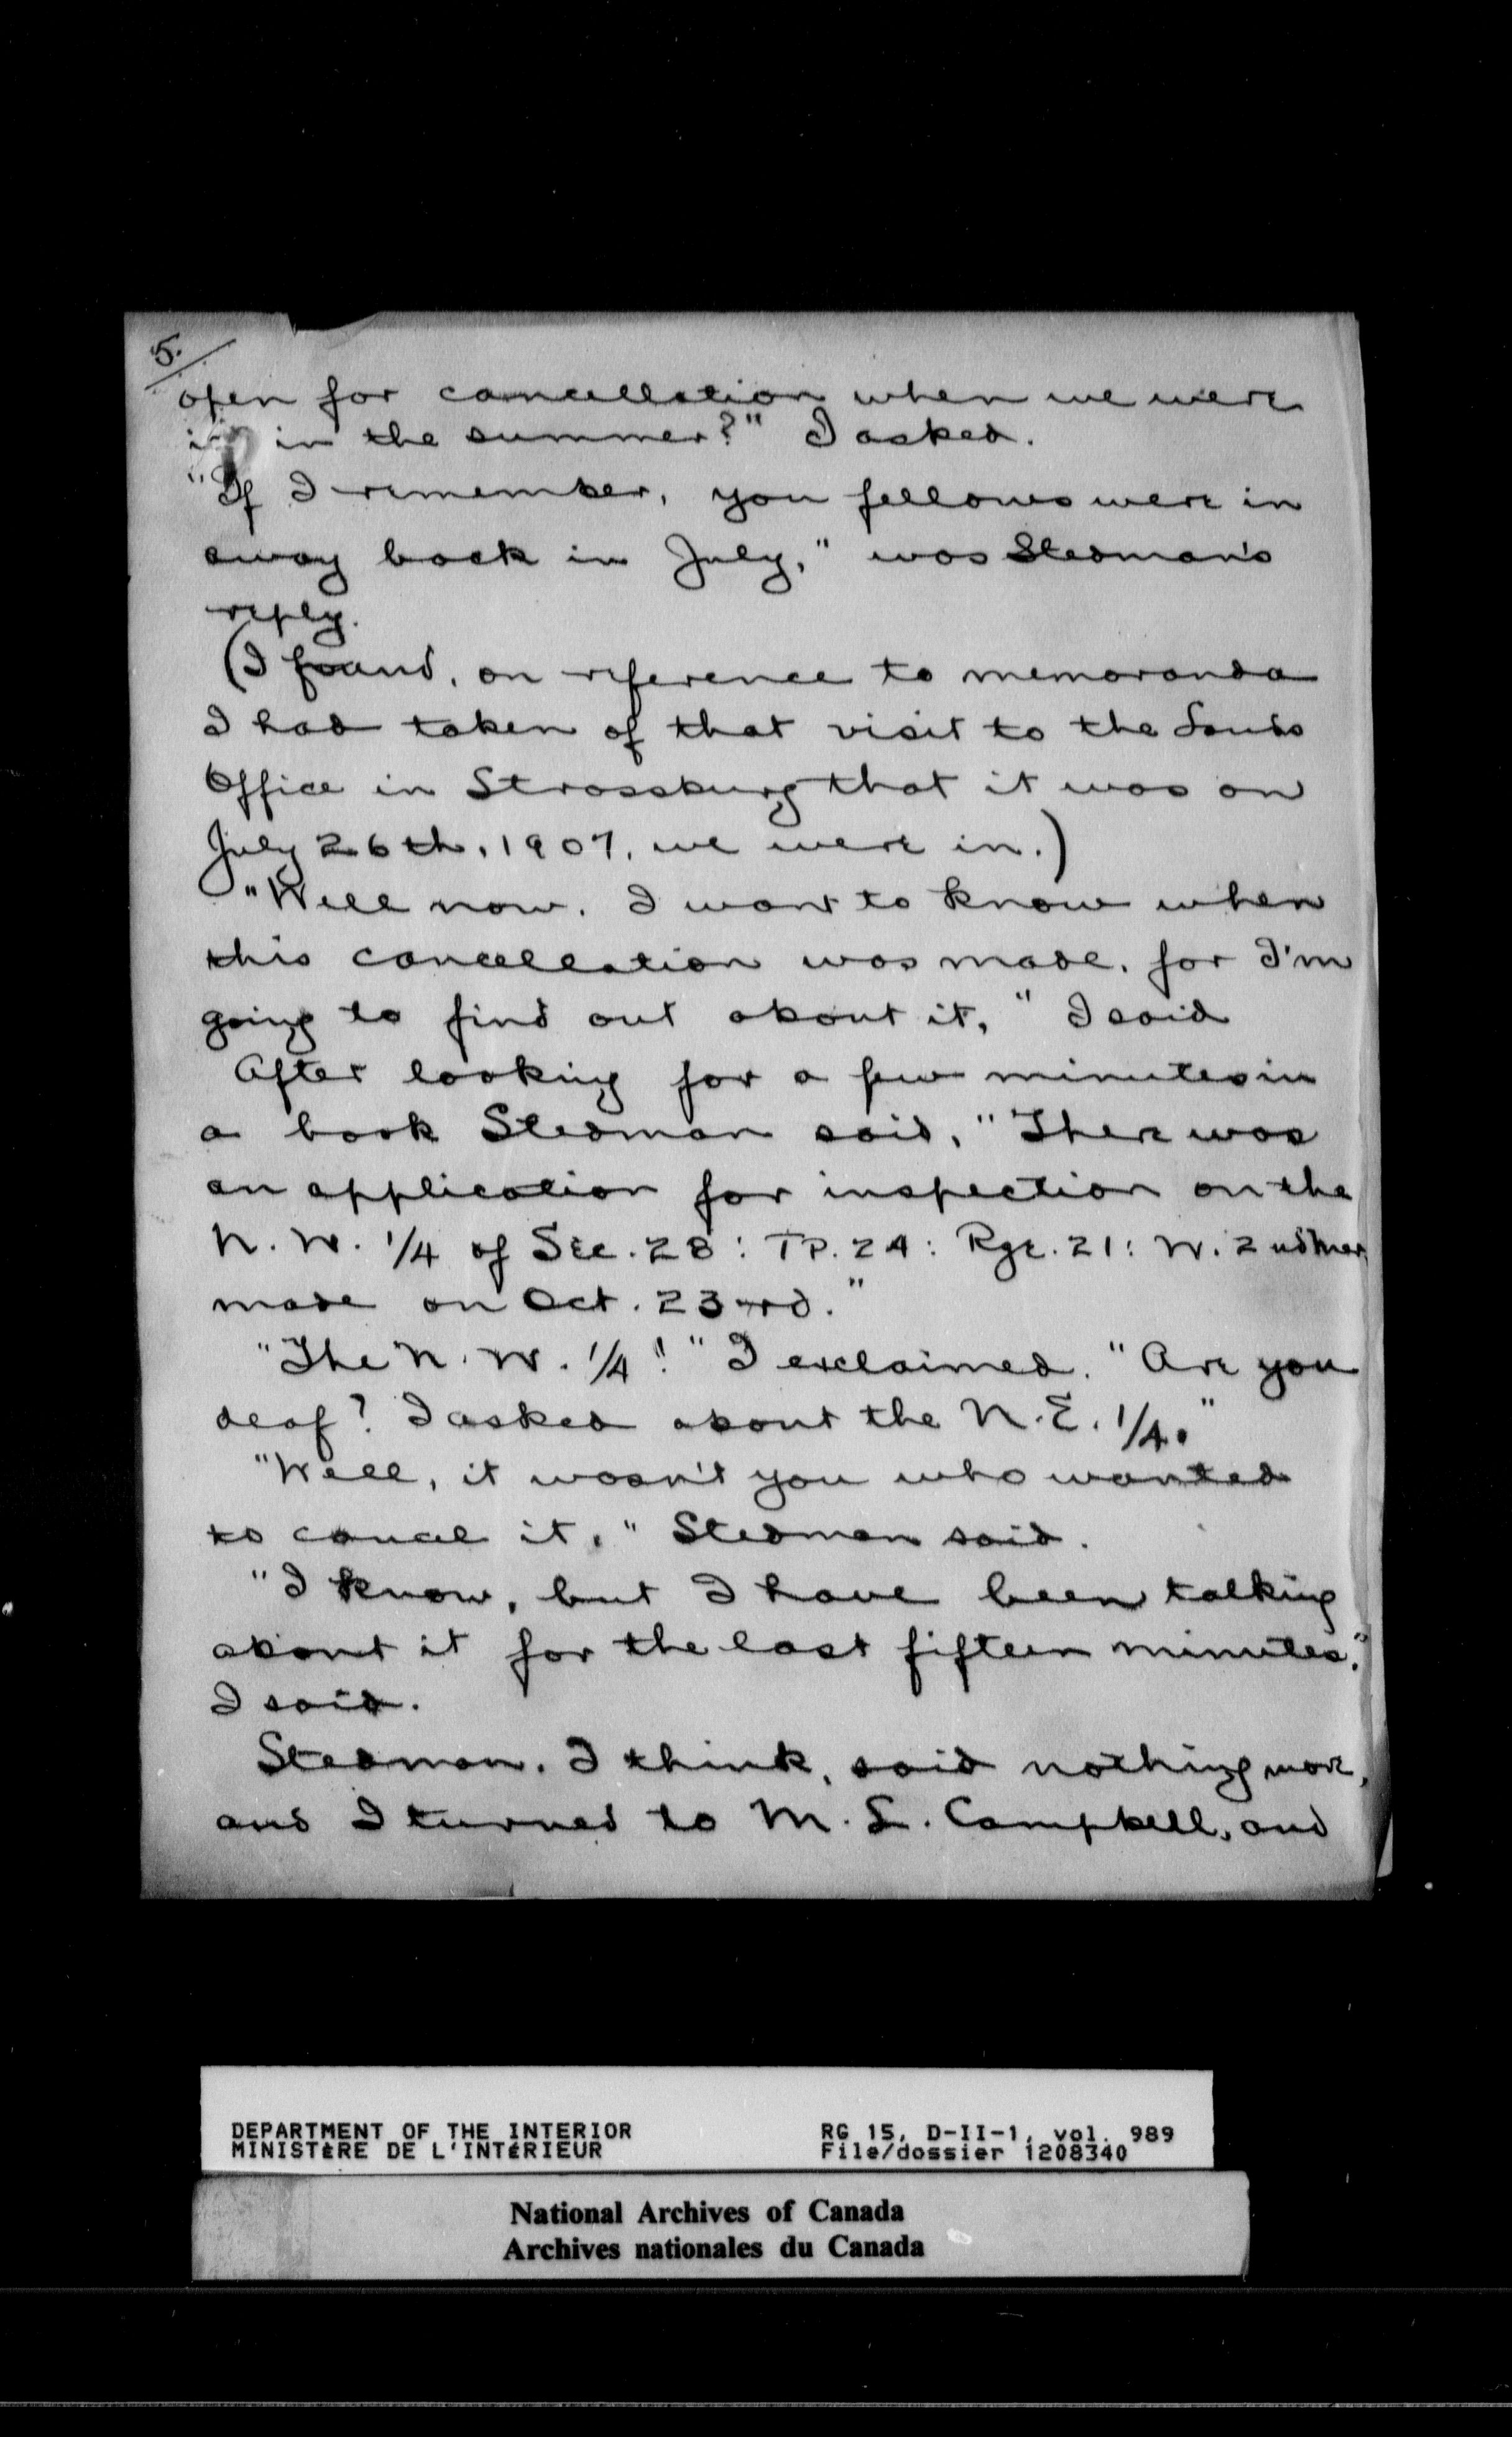 5.
open for cancellation when we were
in in the summer?" I asked.
"If I remember, you fellows were in
away back in July," was Stedman's
reply.
(I found, on reference to memoranda
I had taken of that visit to the Lands
Office in Strassburg that it was on
July 26th, 1907, we were in.)
"Well now, I want to know when
this cancellation was made, for I'm
going to find out about it," I said
After looking for a few minutes in
a book Stedman said, "There was
an application for inspection on the
N. W. 1/4 of Sec. 28: TP. 24: Rge. 21: W. 2nd Mer.
made on Oct. 23rd."
"The N. W. 1/4!" I exclaimed. "Are you
deaf? I asked about the N. E. 1/4."
"Well, it wasn't you who wanted
to cancel it," Stedman said.
"I know, but I have been talking
about it for the last fifteen minutes,"
I said.
Stedman, I think, said nothing more,
and I turned to M. L. Campbell, and
DEPARTMENT OF THE INTERIOR
MINISTÈRE DE L'INTÉRIEUR
RG 15, D-II-1, vol. 989
File/dossier 1208340
National Archives of Canada
Archives nationales du Canada